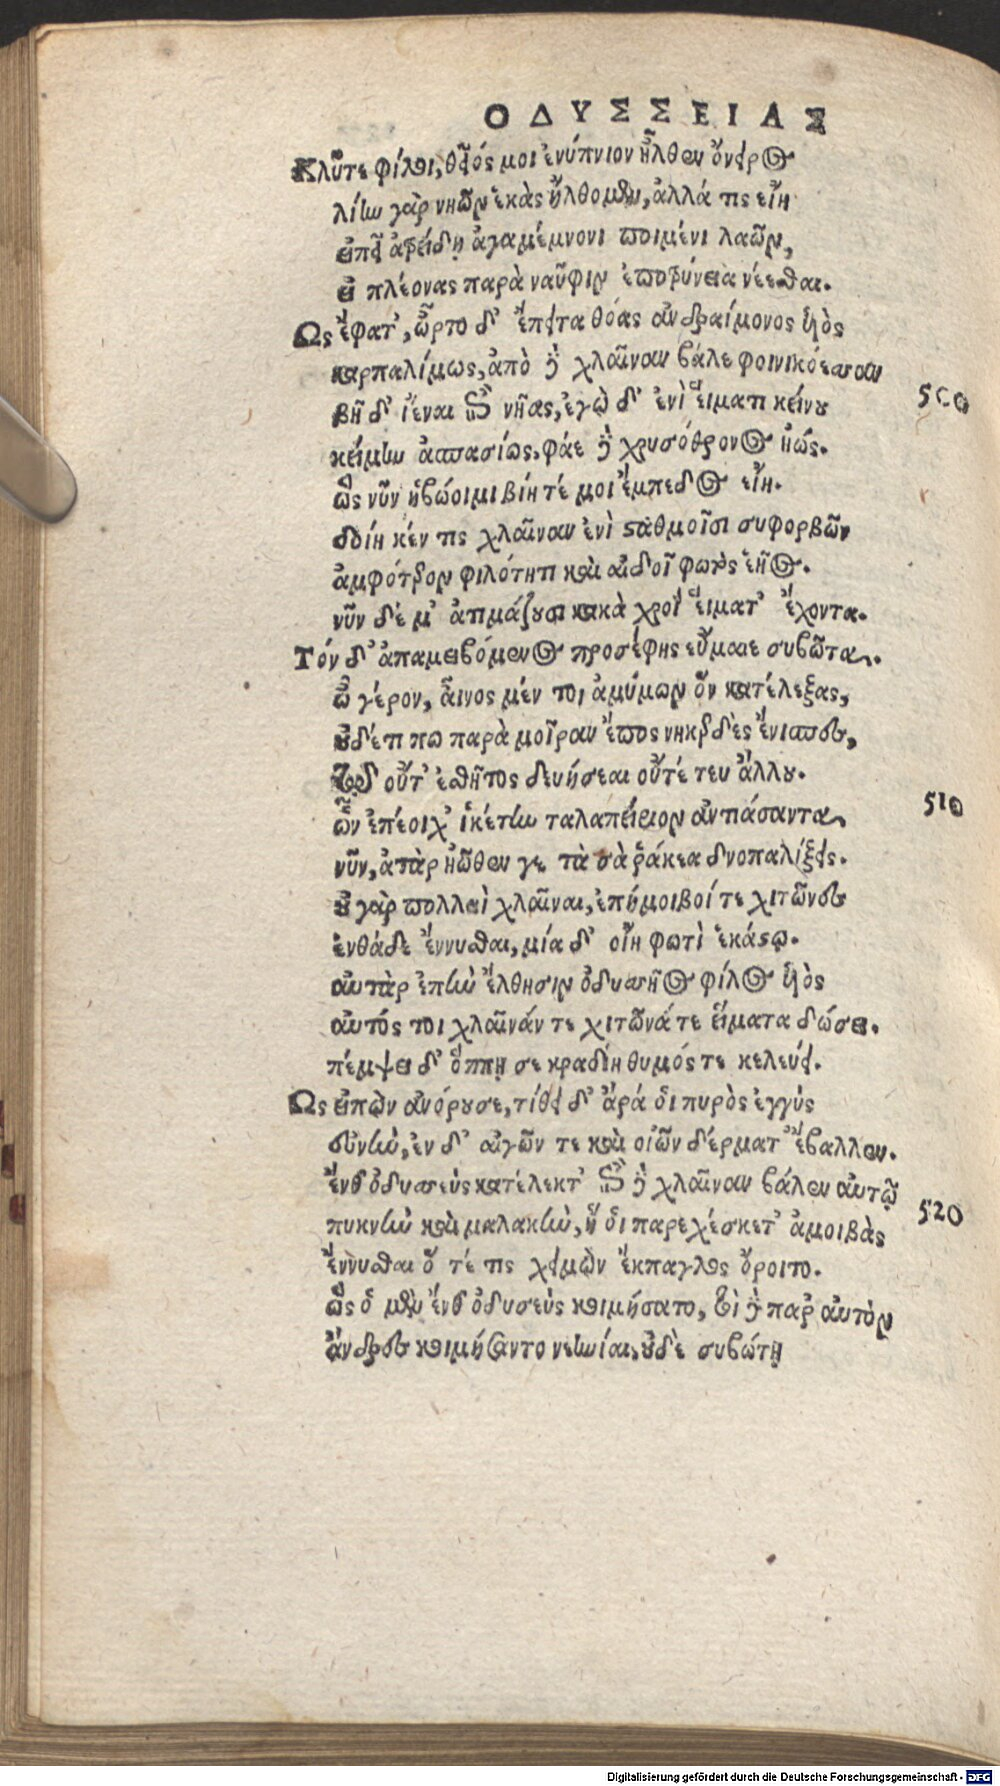 ΟΔΥΣΣΕΙΑΣ
Κλῦτε φίλοι, θεῖός μοι ἐνύπνιον ἦλθεν ὄνειρος
λίην γὰρ νηῶν ἑκὰς ἤλθομεν, ἀλλά τις εἴη
εἰπεῖν ἀτρείδῃ ἀγαμέμνονι ποιμένι λαῶν,
εἰ πλέονας παρὰ ναῦφιν ἐποτρύνειε νέεσθαι.
Ως ἔφατ', ὦρτο δ' ἔπειτα θόας ἀνδραίμονος υἱὸς
καρπαλίμως, ἀπὸ δὲ χλαῖναν βάλε φοινικόεσσαν
500
βῆ δ' ἰέναι ἐπὶ νῆας, ἐγὼ δ' ἐνὶ εἵματι κείνου
κείμην ἀσπασίως, φάε δὲ χρυσόθρονος ἠώς.
ὣς νῦν ἡβώοιμι βίη τέ μοι ἔμπεδος εἴη.
δοίη κέν τις χλαῖναν ἐνὶ σταθμοῖσι συφορβῶν
ἀμφότερον φιλότητι καὶ αἰδοῖ φωτὸς ἑῆος.
νῦν δέ μ' ἀτιμάζουσι κακὰ χροῒ εἵματ' ἔχοντα.
Τόν δ' ἀπαμειβόμενος προσέφης εὔμαιε συβῶτα.
ὦ γέρον, αἶνος μέν τοι ἀμύμων ὃν κατέλεξας,
οὐδέ τί πω παρὰ μοῖραν ἔπος νηκερδὲς ἔνισπες,
τῷ οὔτ' ἐσθῆτος δευήσεαι οὔτέ τευ ἄλλου.
510
ὧν ἐπέοιχ' ἱκέτην ταλαπείριον ἀντιάσαντα,
νῦν, ἀτὰρ ἠῶθεν γε τὰ σὰ ῥάκεα δνοπαλίξεις.
οὐ γὰρ πολλαὶ χλαῖναι, ἐπημοιβοί τε χιτῶνες
ἐνθάδε ἕννυσθαι, μία δ' οἴη φωτὶ ἑκάστῳ.
αὐτὰρ ἐπὴν ἔλθησιν ὀδυσσῆος φίλος υἱὸς
αὐτός τοι χλαῖνάν τε χιτῶνά τε εἵματα δώσει.
πέμψει δ' ὅππη σε κραδίη θυμός τε κελεύει.
Ως εἰπὼν ἀνόρουσε, τίθει δ' ἄρά οἱ πυρὸς ἐγγύς
εὐνὴν, ἐν δ' αἰγῶν τε καὶ οἰῶν δέρματ' ἔβαλλεν.
ἔνθ' ὀδυσσεὺς κατέλεκτ' ἐπὶ δὲ χλαῖναν βάλεν αὐτῷ
520
πυκνὴν καὶ μαλακὴν, ἥ οἱ παρεχέσκετ' ἀμοιβὰς
ἕννυσθαι ὅ τέ τις χειμὼν ἔκπαγλος ὄροιτο.
ὣς ὁ μὲν ἔνθ' ὀδυσεὺς κοιμήσατο, τοὶ δὲ παρ' αὐτὸν
ἄνδρες κοιμήσαντο νεηνίαι, οὐδὲ συβώτῃ